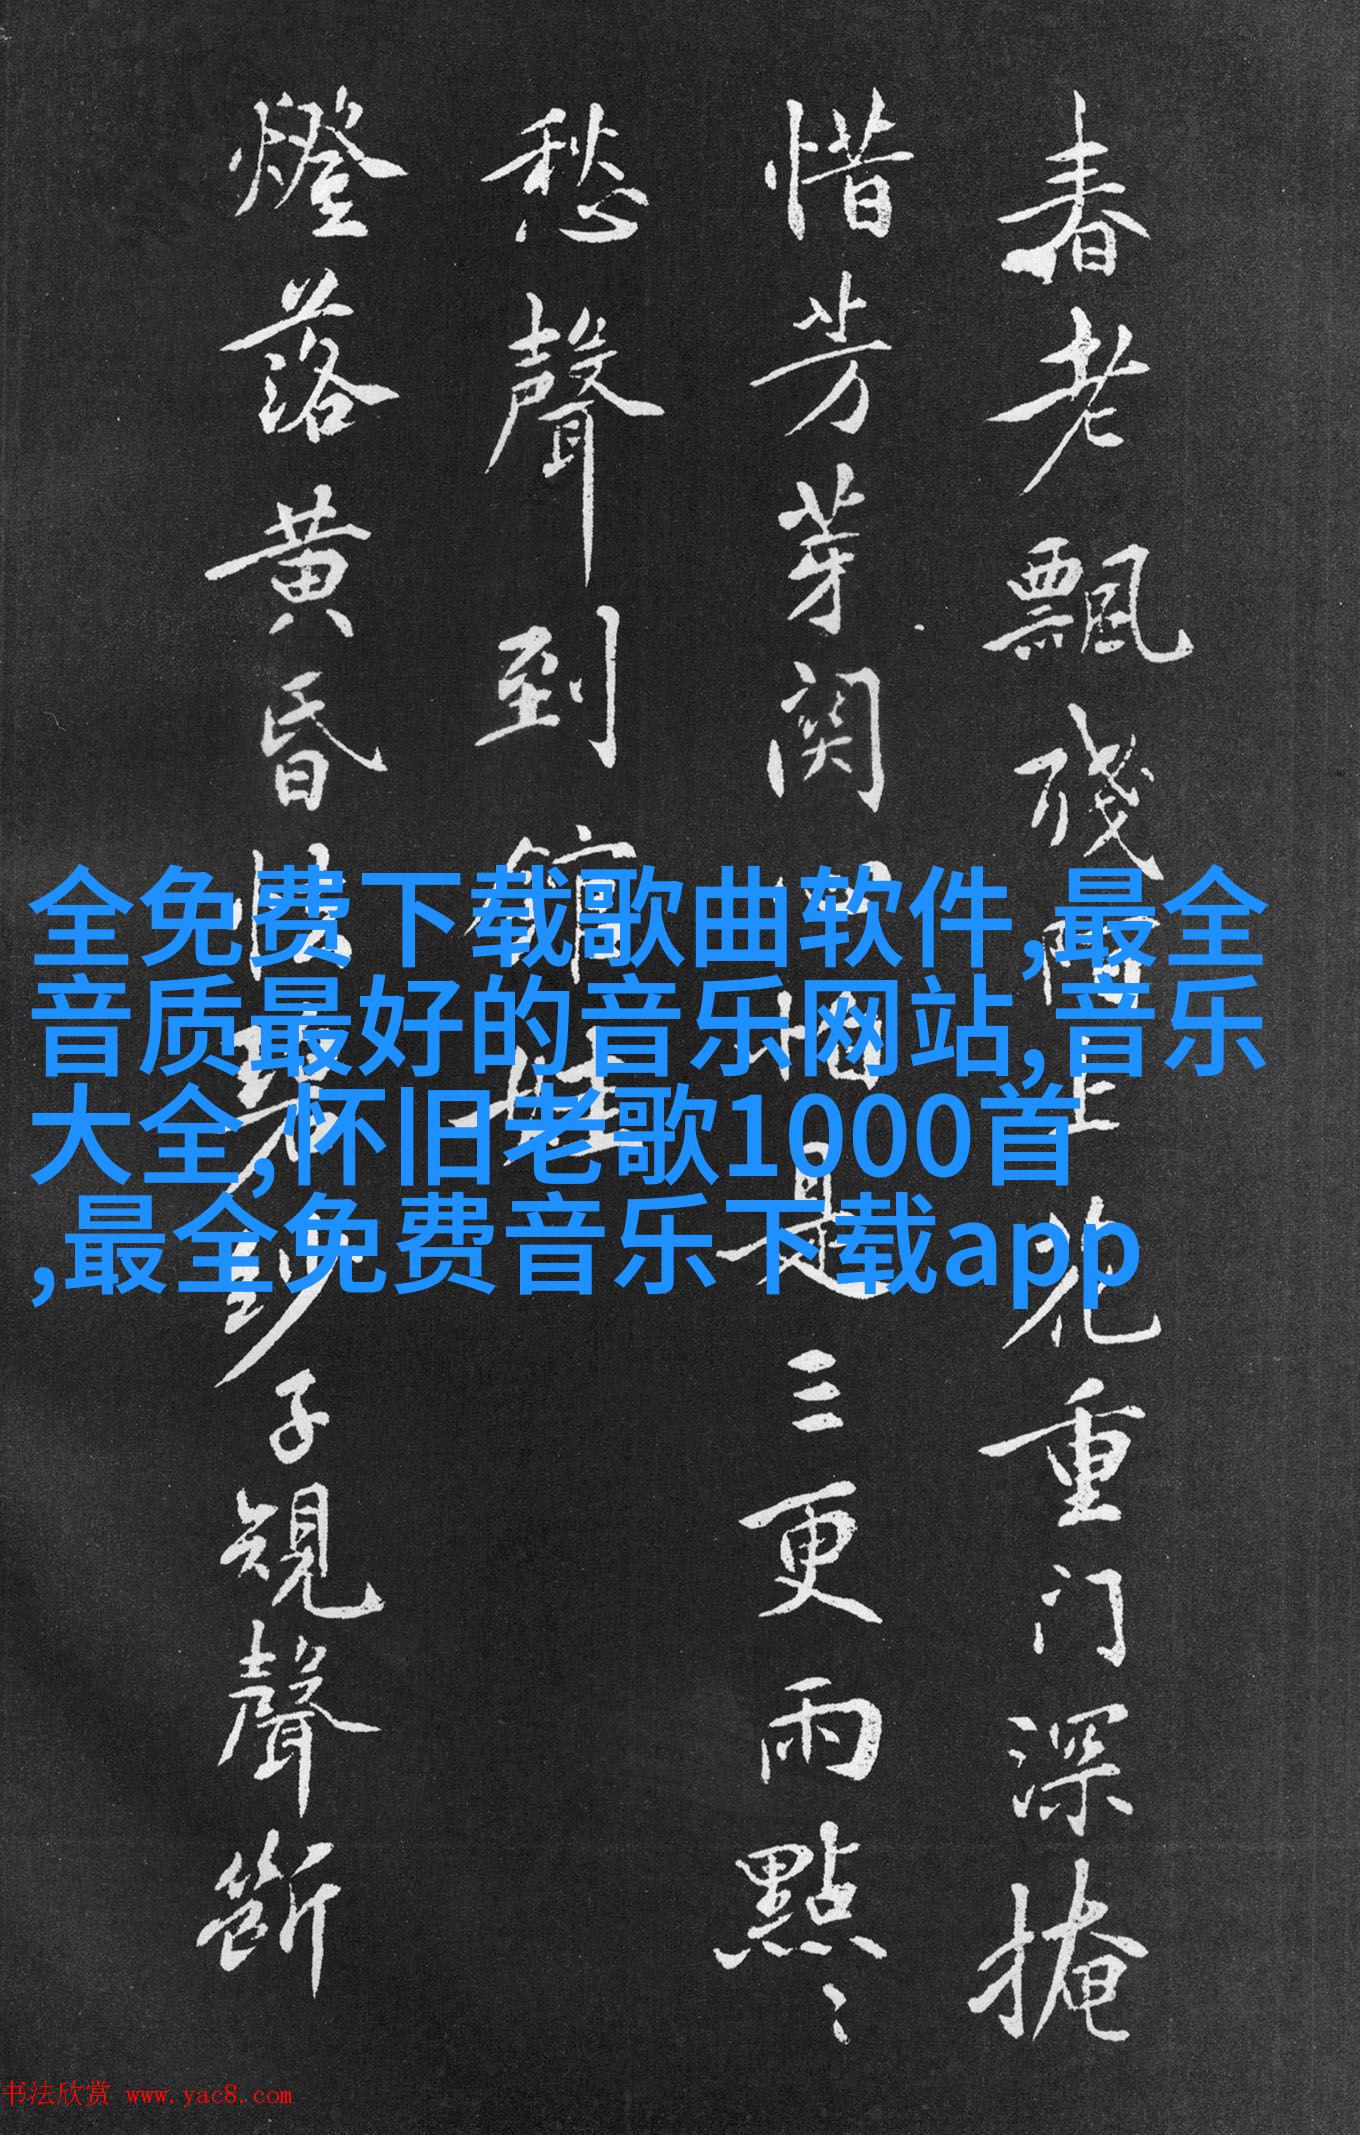 春老飄殘上花重门深掩
惜芳芽関怕是三更雨點〻
愁聲到館娃
燈落黄昏碧紗子規聲斷
全免费下载歌曲软件,最全
音质最好的音乐网站,音乐
大全,怀旧老歌1000首
,最全免费音乐下载app
书法欣赏 www.yac8.com